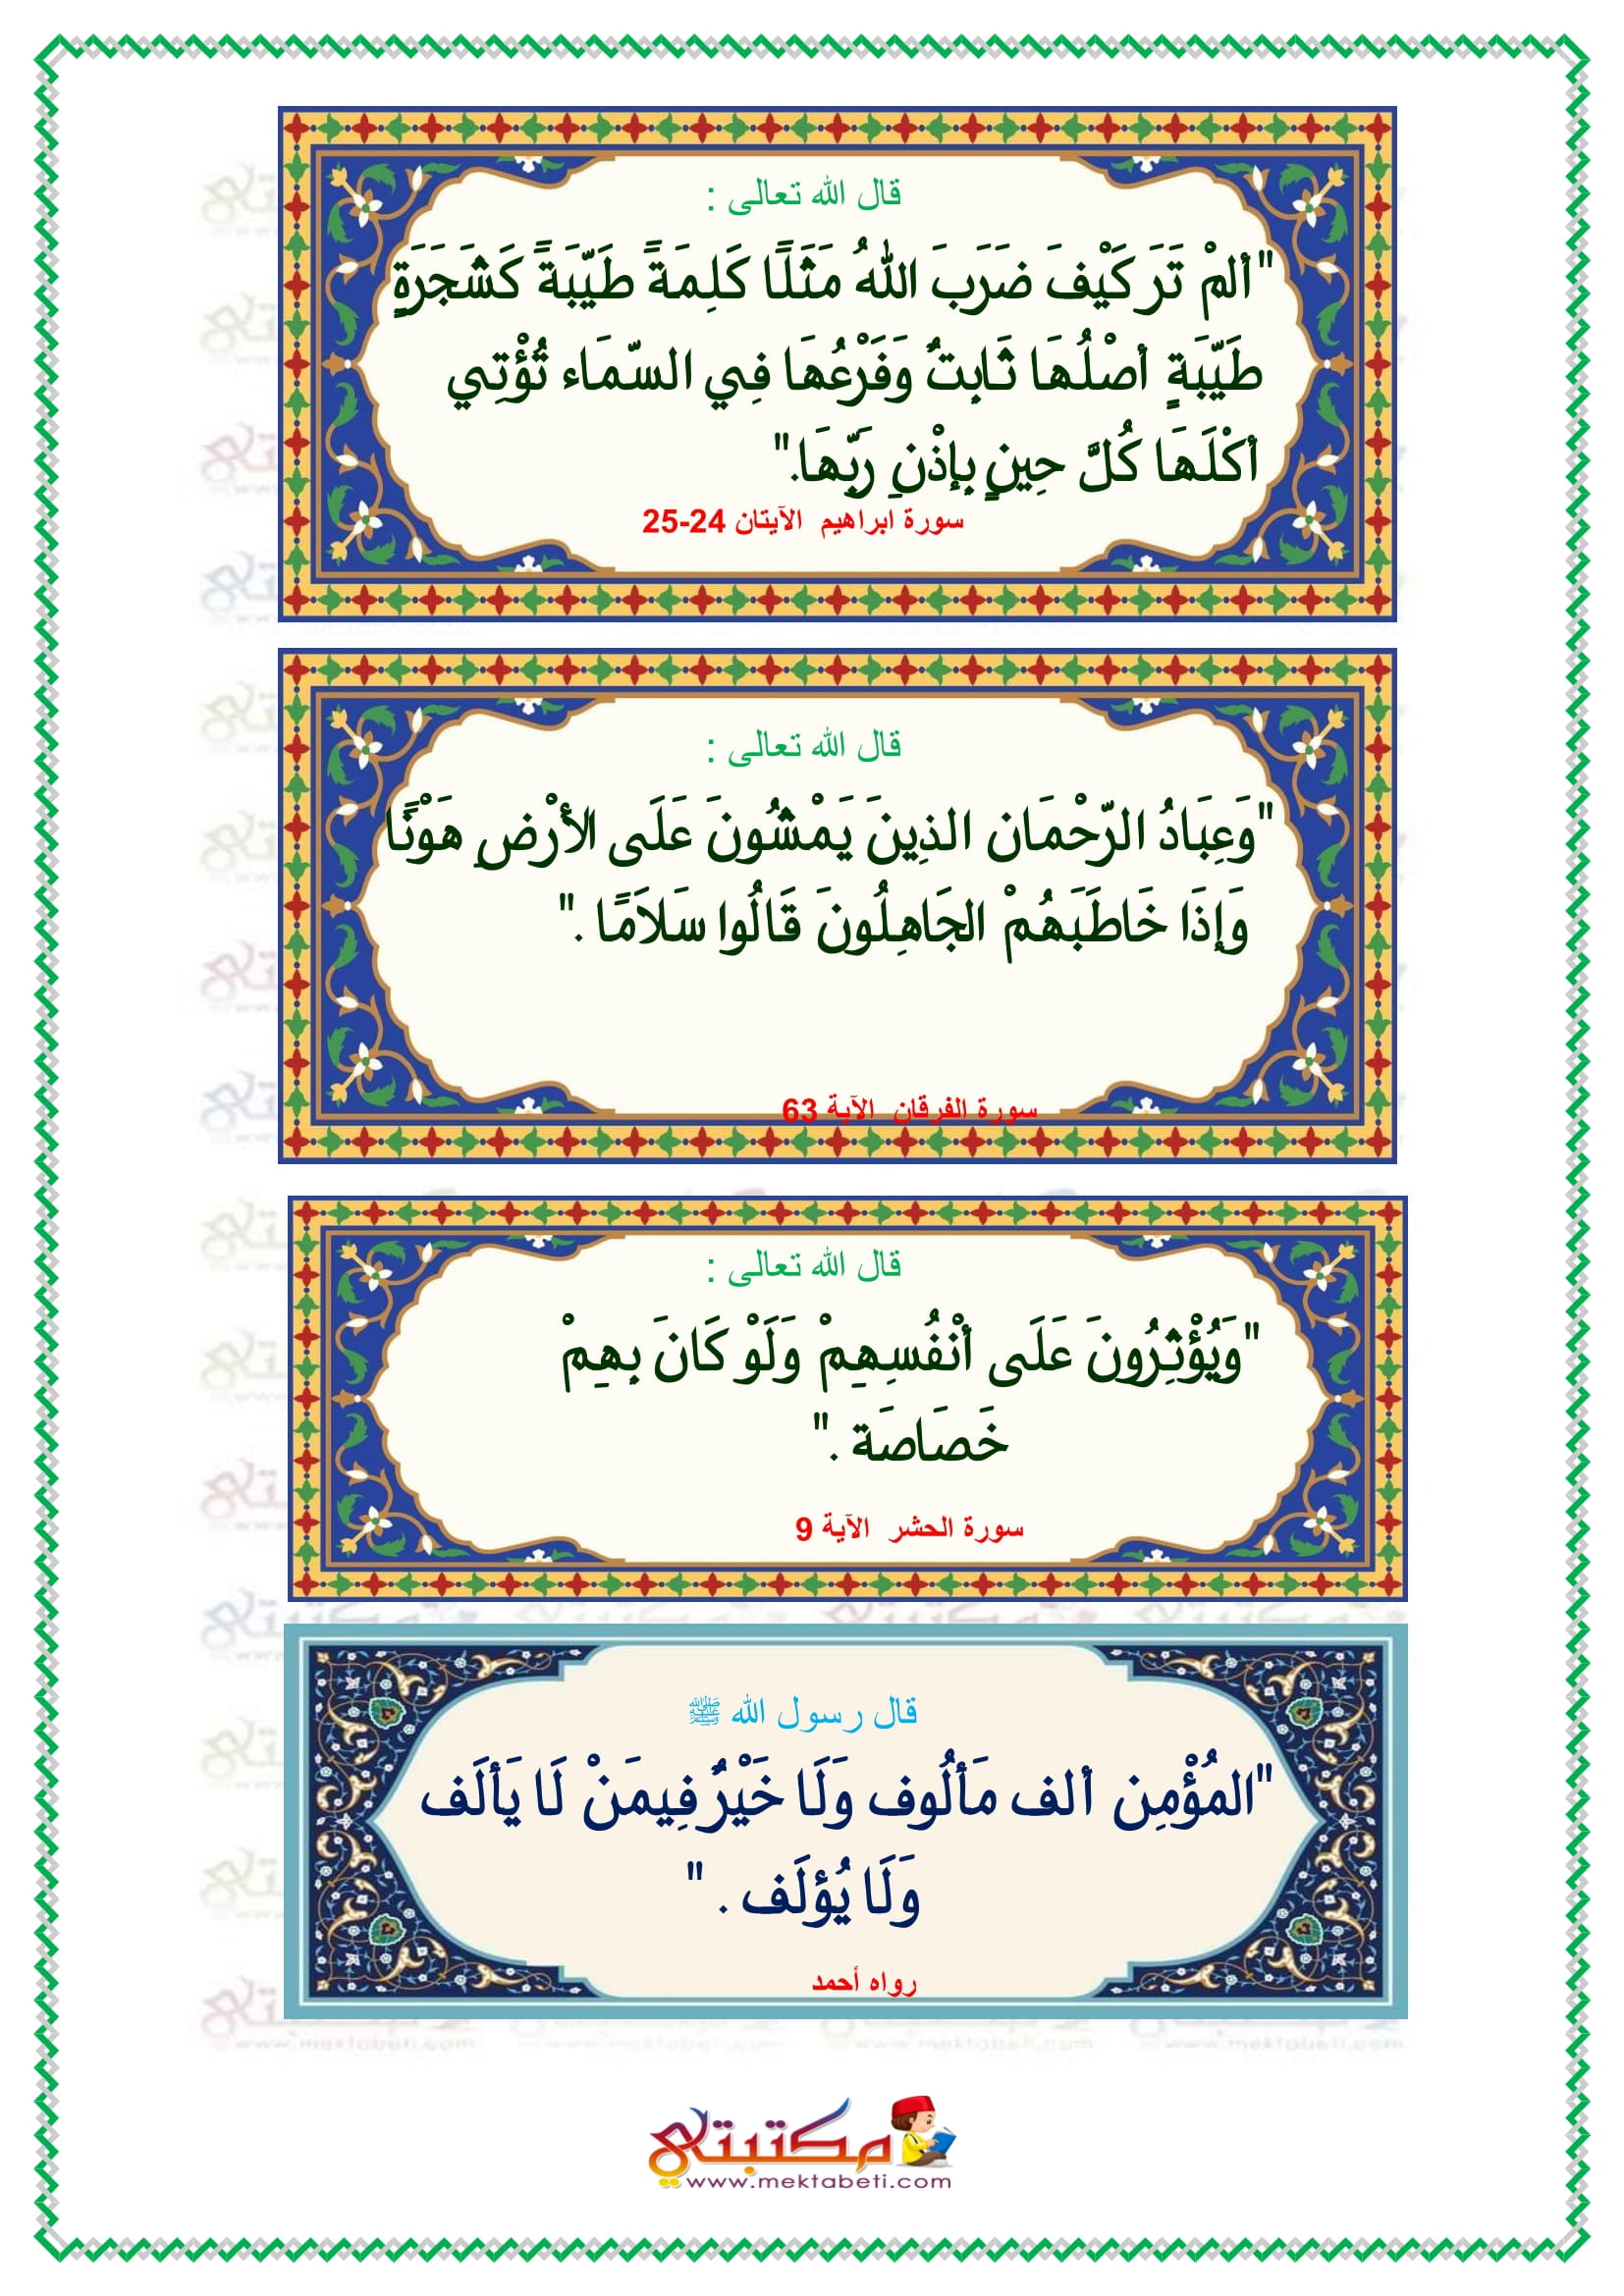 قال الله تعالى :
"ألمْ تَرَ كَيْفَ ضَرَبَ اللهُ مَثَلًا كَلِمَةً طَيّبَةً كَشَجَرَةٍ
طَيّبَةٍ أصْلُهَا ثَابِتٌ وَفَرْعُهَا فِي السّمَاء تُؤْتِي
أكْلَهَا كُلَّ حِينٍ بِإذْنِ رَبِّهَا."
سورة ابراهيم الآيتان 24-25
قال الله تعالى :
"وَعِبَادُ الرّحْمَان الذِينَ يَمْشُونَ عَلَى الأرْضِ هَوْنًا
وَإذَا خَاطَبَهُمْ الجَاهِلُونَ قَالُوا سَلاَمًا ."
سورة الفرقان الآية 63
قال الله تعالى :
"وَيُؤْثِرُونَ عَلَى أنْفُسِهِمْ وَلَوْ كَانَ بِهِمْ
خَصَاصَة ."
سورة الحشر الآية 9
قال رسول الله ﷺ
"المُؤْمِن ألف مَألُوف وَلَا خَيْرٌ فِيمَنْ لَا يَألَف
وَلَا يُؤلَف . "
رواه أحمد
مكتبتي
www.mektabeti.com